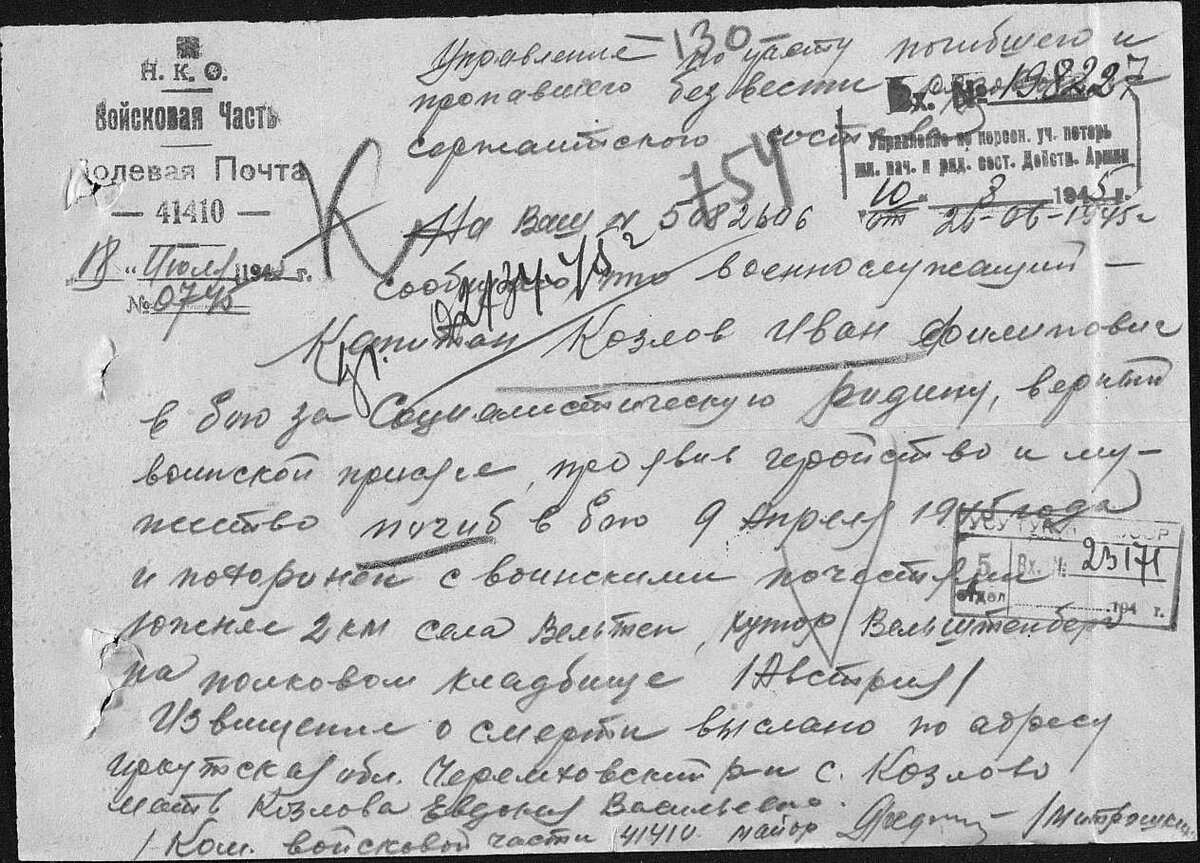 Н. К. О.
Войсковая Часть
Полевая Почта
— 41410 —
18 " Июля 1945 г.
№ 0745
130
Управление по учету погибшего и
пропавшего без вести
сержантского состава
Вх. № 198227
Управление по персон. уч. потерь
мл. нач. и ряд. сост. Действ. Армии
10 " 8 1945 г.
754
На Ваш № 5082606 от 26-06-1945 г
сообщаю, что военнослужащий —
Капитан Козлов Иван Филипович
в бою за Социалистическую Родину, верный
воинской присяге, проявив геройство и му-
жество погиб в бою 9 Апреля 1945 года
и похоронен с воинскими почестями
южнее 2 км села Вельтен, хутор Вельштенберг
на полковом кладбище /Австрия/
Извещение о смерти выслано по адресу
Иркутская обл. Черемховский р-н с. Козлово
мать Козлова Евдокия Васильевна.
/ Ком. войсковой части 41410 майор /Митрошкин
5 отдел
Вх. № 23171
194 г.